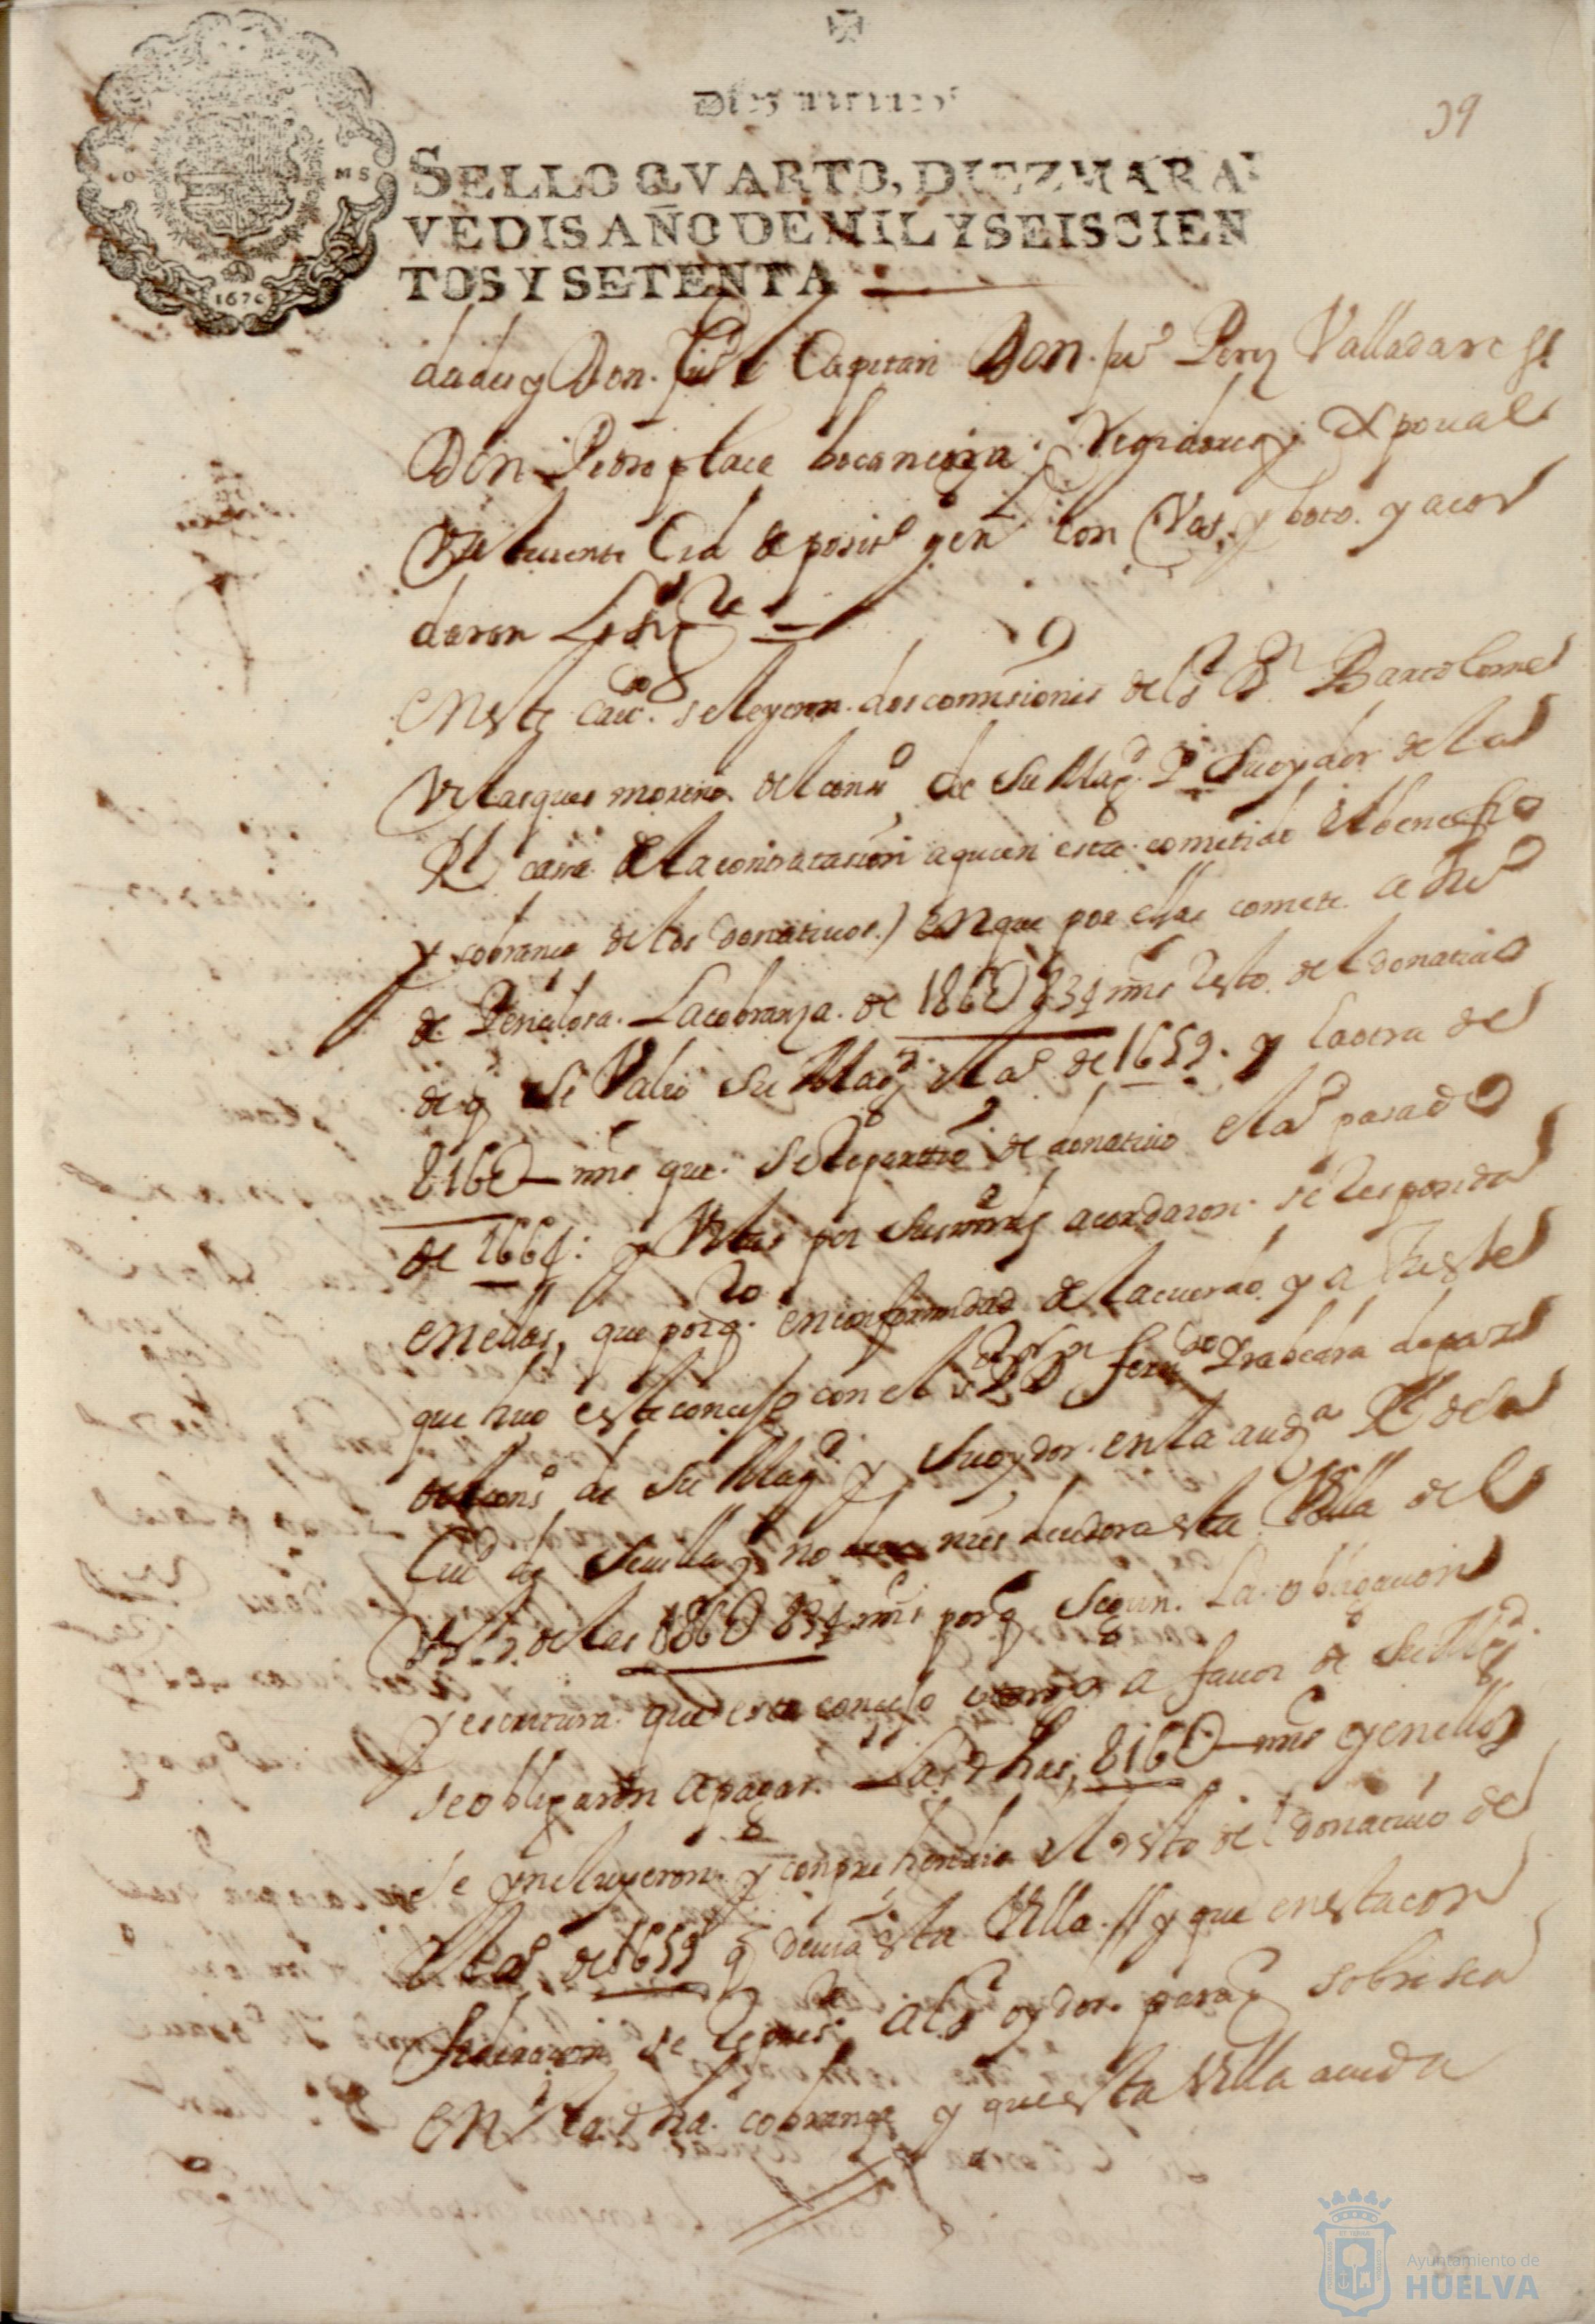 Diez mrs
39
SELLO QVARTO, DIEZ MARA-
VEDIS AÑO DE MIL Y SEISCIEN
TOS Y SETENTA
MS
1670
dades y Don Ju° Capitan Don Ju° Perez Valladares
Don Pedro place bocanegra Regidores Xpoual
de su depositº genl con Vos y boto y acor
daron Lo sigte
En este cauº se leyeron dos comisiones del sr Dn Bartolome
Velasques moreno del consº de Su Magd Su oydor de la
Rl casa de la contratasion a quien esta cometido el benefisio
y cobransa de los donatiuos) en que por ellas comete a
de Peñalosa La cobranza de 186U834 mrs resto del donatiuo
de q se Valio Su Magd el aº de 1659 y la otra de
816U mrs que se le repartio de donatiuo el aº pasado
de 1664: y Vistas por sus mrds acordaron se responda
en ellas, que porq en conformidad del acuerdo y ajuste
que hiso este consejo con el sr Dor Dn ferndo
del consº de Su Magd y Su oydor en la auda Rl de la
Ciud de Seuilla no es deudora esta Villa del
resto de las 186U834 mrs porq segun La obligasion
y escritura que este consejo otorgo a fauor de Su Magd
se obligaron a pagar Las dhas 816U mrs y en ellos
se yncluyeron y conprehendio el resto del donatiuo de
el aº de 1659 q deuia esta Villa // y que en esta con
siderasion se represte al sr oydor para q sobresea
en la dha cobranza y que esta Villa acuda
Ayuntamiento de
HUELVA